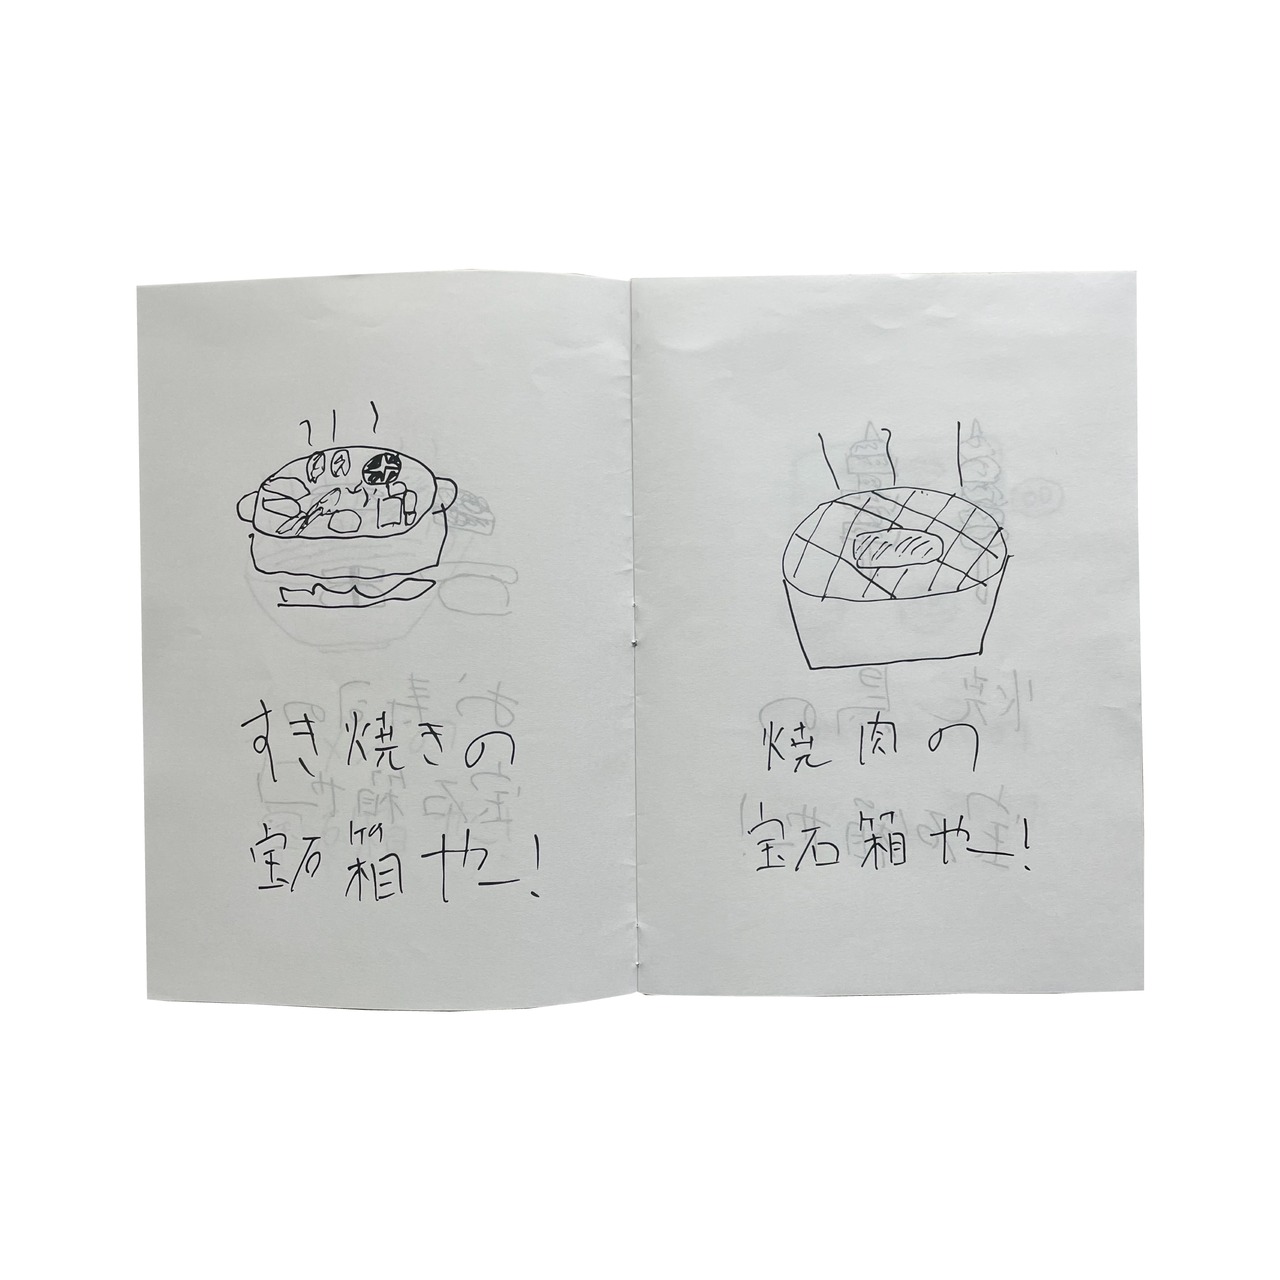 すき焼きの
宝石箱やー!
焼肉の
宝石箱やー!